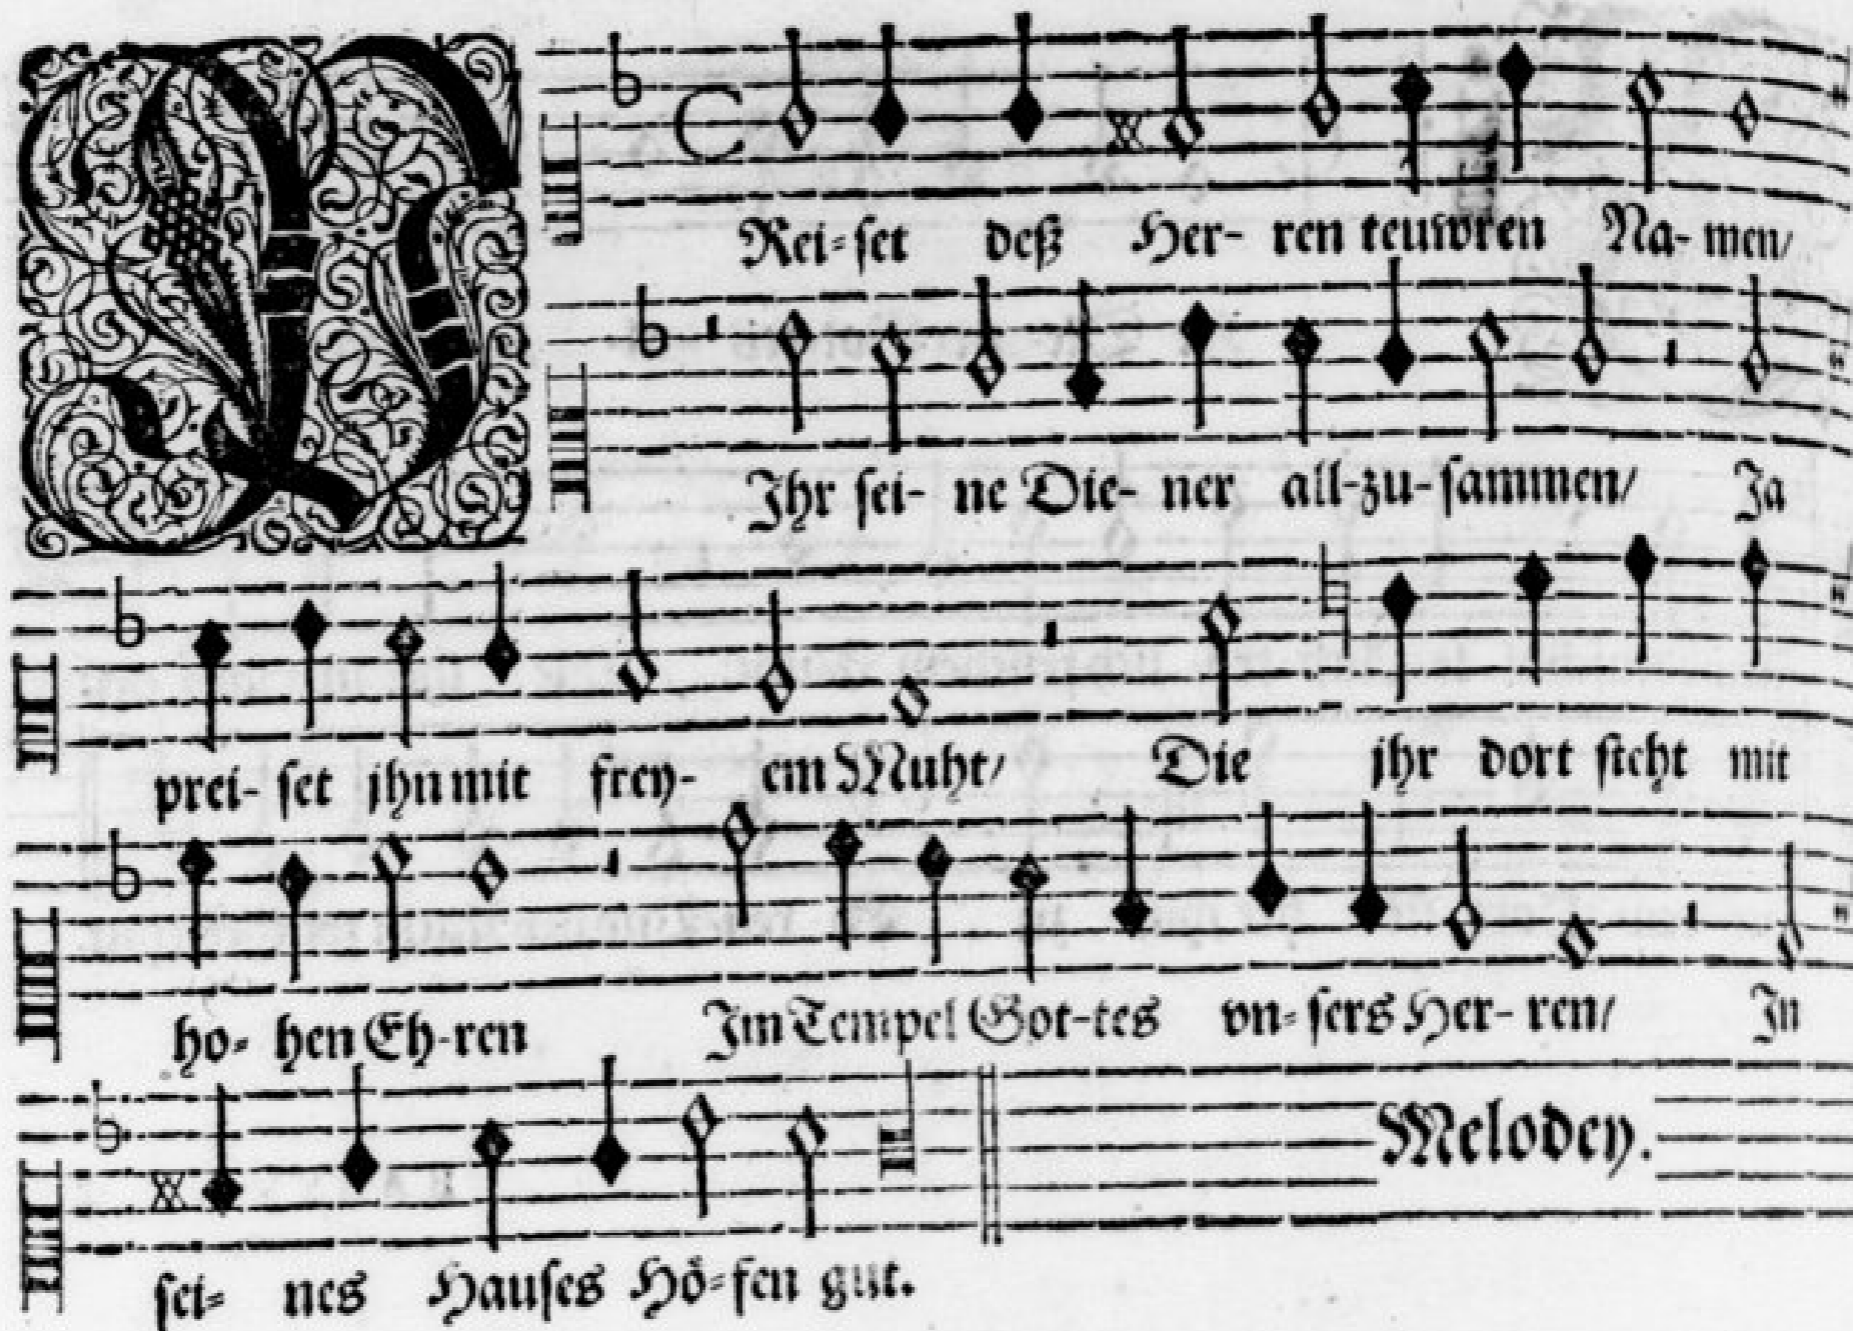 PRei-ſet deß Her- ren teuwren Na- men/
Ihr ſei- ne Die- ner all-zu-ſammen/ Ja
prei- ſet jhn mit frey- em Muht/ Die jhr dort ſteht mit
ho- hen Eh-ren Im Tempel Got-tes vn- ſers Her- ren/ In
Melodey.
ſei- nes Hauſes Hoͤ-fen gut.